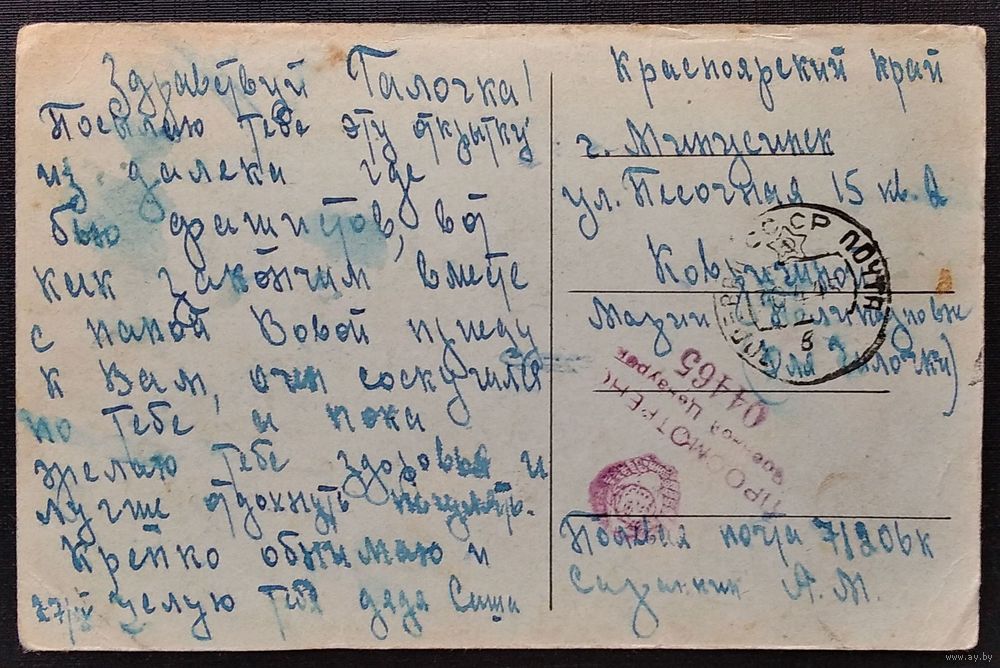 Здравствуй Галочка!
Посылаю тебе эту открытку
из далека где
бью фашистов, вот
как закончим, вместе
с папой Вовой приеду
к Вам, очен соскучился
по тебе и пока
желаю тебе здоровья и
лучше отдохнуть
Крепко обнимаю и
целую тебя дядя Саша
Красноярский край
г. Минусинск
ул. Песочная 15 кв. 2
Марии
(для Галочки)
СССР ПОЧТА
ПРОСМОТРЕНО
Военной Цензурой
04465
Полевая почта 71206к
А. М.
www.ay.by